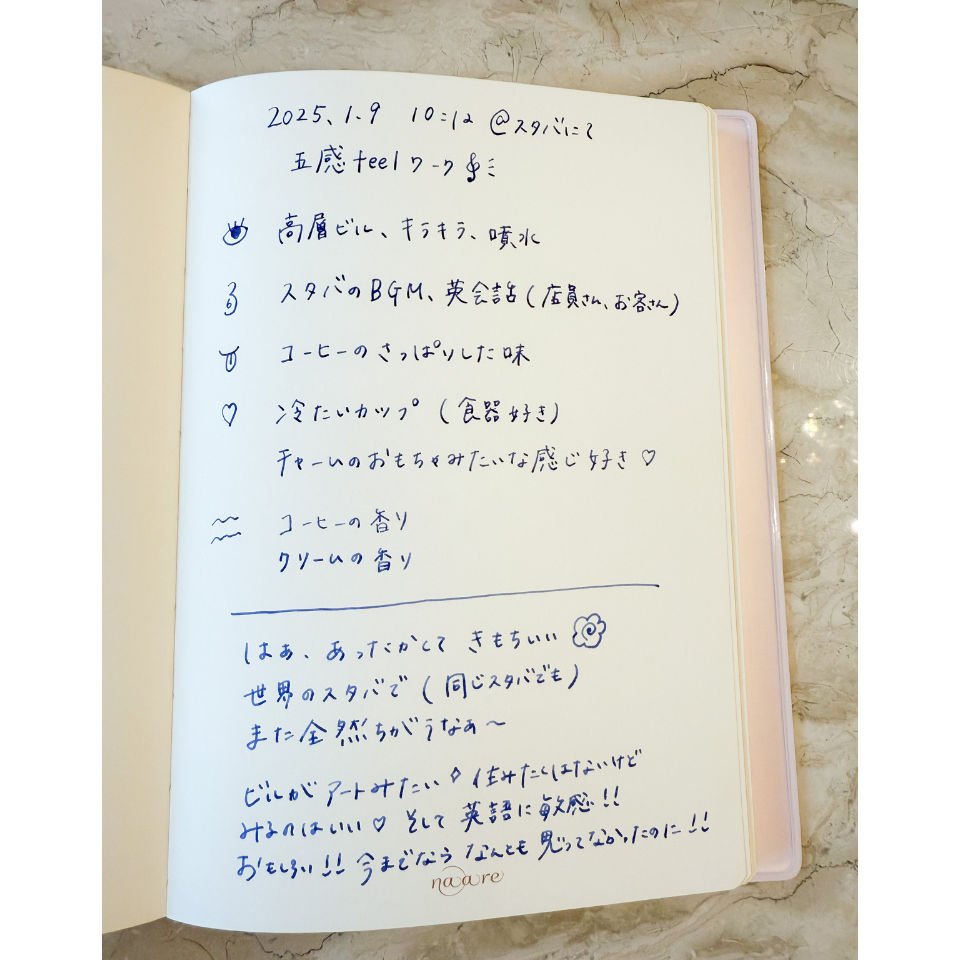 2025、1、9 10:12 @スタバにて
五感feelワーク
高層ビル、キラキラ、噴水
スタバのBGM、英会話(店員さん、お客さん)
コーヒーのさっぱりした味
♡ 冷たいカップ(食器好き)
チャームのおもちゃみたいな感じ好き♡
コーヒーの香り
クリームの香り
はぁ、あったかくて きもちいい
世界のスタバで(同じスタバでも)
また全然ちがうなぁ〜
ビルがアートみたい 住みたくはないけど
みるのはいい♡ そして英語に敏感!!
おもしろい!! 今までなら なんとも思ってなかったのに!!
naare